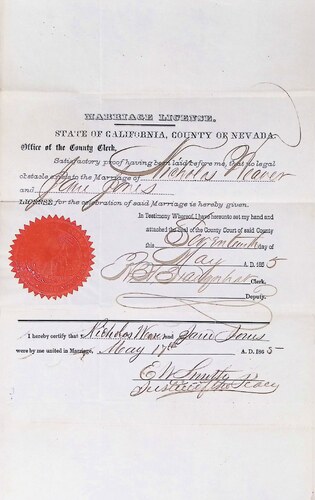 MARRIAGE LICENSE,
STATE OF CALIFORNIA, COUNTY OF NEVADA
Office of the County Clerk,
Satisfactory proof having been laid before me, that no legal
obstacle exists to the Marriage of Nicholas Weaver
and Jane Jones
LICENSE for the celebration of said Marriage is hereby given.
In Testimony Whereof, I have hereunto set my hand and
attached the seal of the County Court of said County
this Seventeenth day of
May A.D. 1865
Clerk,
Deputy.
I hereby certify that Nicholas and Jane Jones
were by me united in Marriage, May 17th A. D. 1865
E W Smith
Justice of the Peace